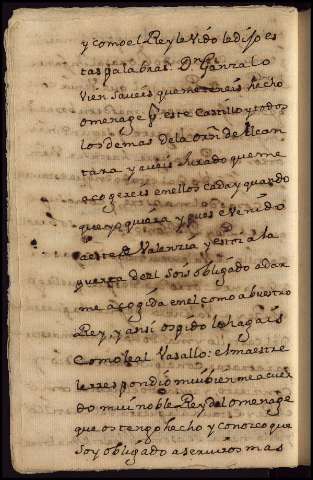 y como el Rey le vido le dijo es
tas palabras. Dn Gonzalo
vien saveis que me teneis hecho
omenage por este Castillo y todos
los demas de la orn de Alcan
tara y aveis jurado que me
acogereis en ellos cada y quando
que yo quiera y pues e venido
a este de Valencia y estoi a la
puerta del sois obligado a dar
me acogida en el como a buestro
Rey, y ansi os pido lo hagais
como leal vasallo: el maestre
le respondio mui bien me acuer
do mui noble Rey del omenage
que os tengo hecho y conozco que
soy obligado a serviros mas